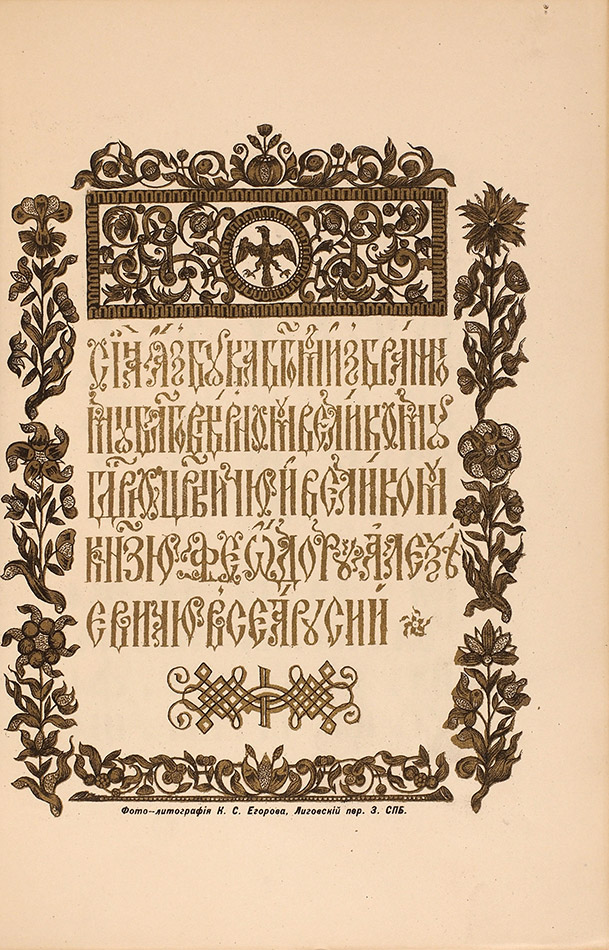 СІѦ АЗБУКА БГОМЪ ИЗБРАННО
МУ БЛГОВѢРНОМУ ВЕЛИКОМУ
ГДРЮ ЦРВИЧЮ И ВЕЛИКОМУ
КНЗЮ ФЕѠДОРУ АЛЕѮѢ
ЕВИЧЮ ВСЕѦ РУСИИ
Фото--литографія К. С. Егорова, Лиговскій пер. 3. СПБ.